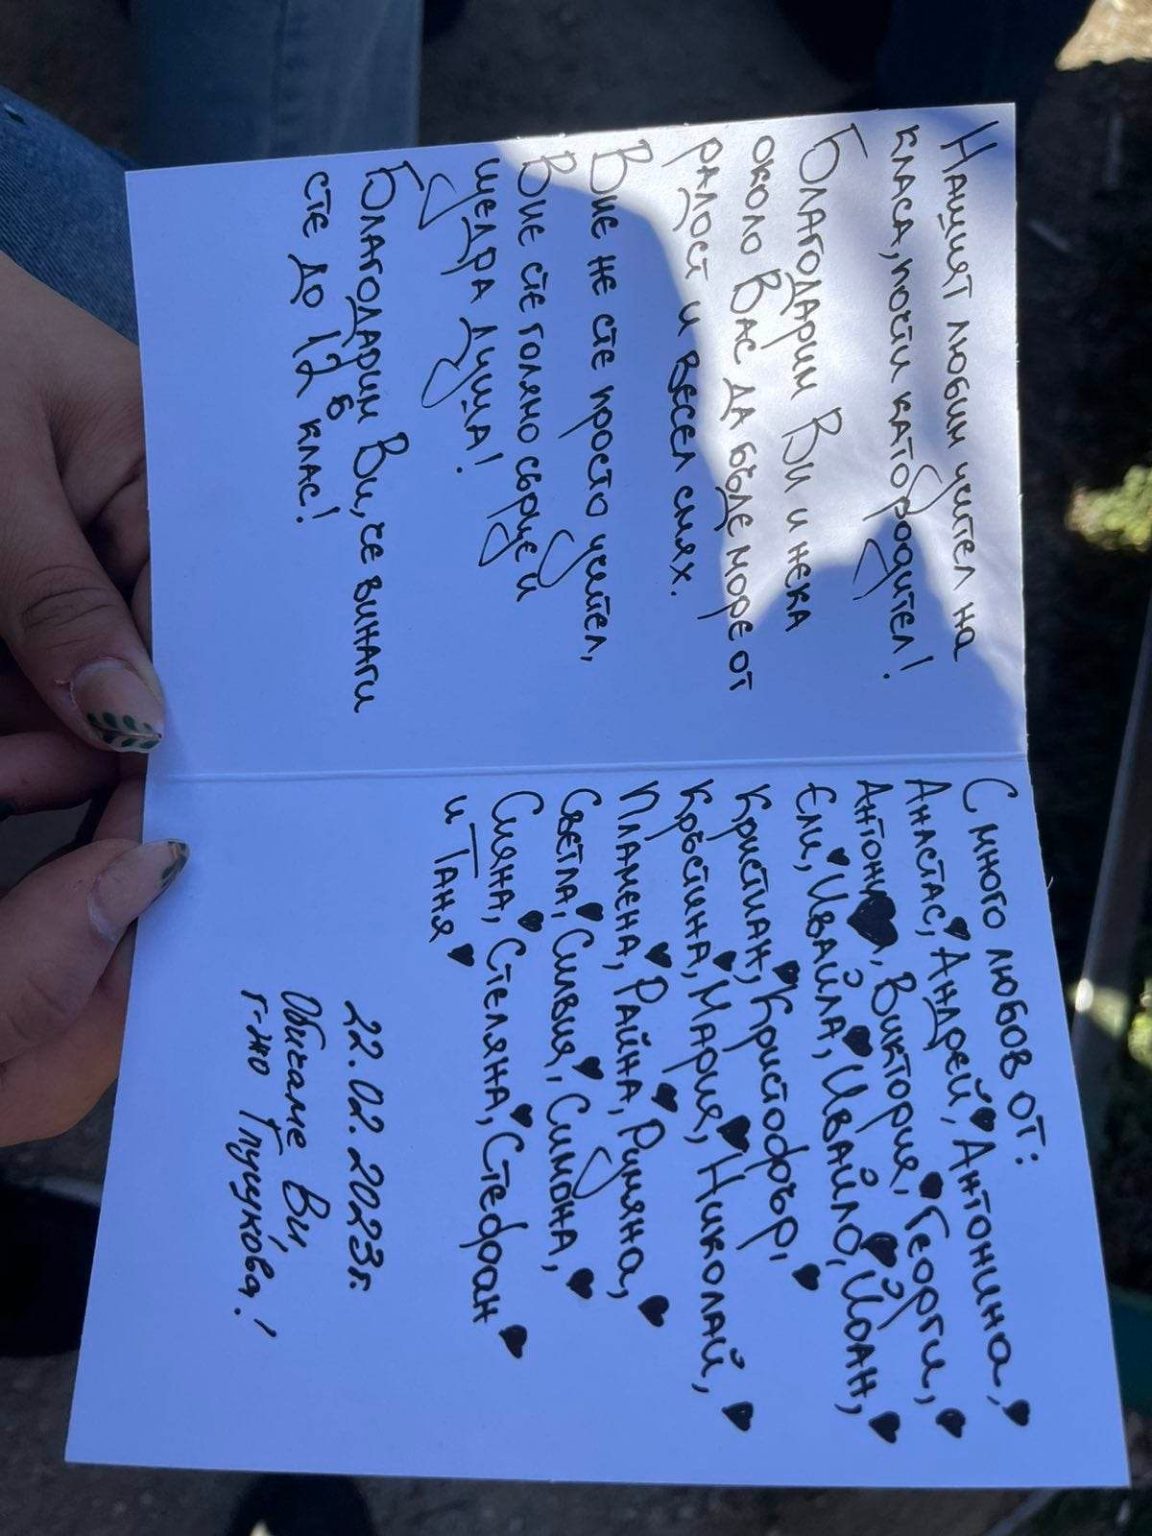 Нашият любим учител на
класа, почти като родител!
Благодарим Ви и нека
около Вас да бъде море от
радост и весел смях.
Вие не сте просто учител,
Вие сте голямо сърце и
щедра душа!
Благодарим Ви, че винаги
сте до 12б клас!
С много любов от:
Анастас, Андрей, Антонина,
Антония, Виктория, Георги,
Ели, Ивайла, Ивайло, Йоан,
Кристиан, Кристофър,
Кръстина, Мария, Николай,
Пламена, Райна, Румяна,
Светла, Силвия, Симона,
Сияна, Стеляна, Стефран
и Таня
22.02.2023г.
Обичаме Ви,
г-жо Глушкова!